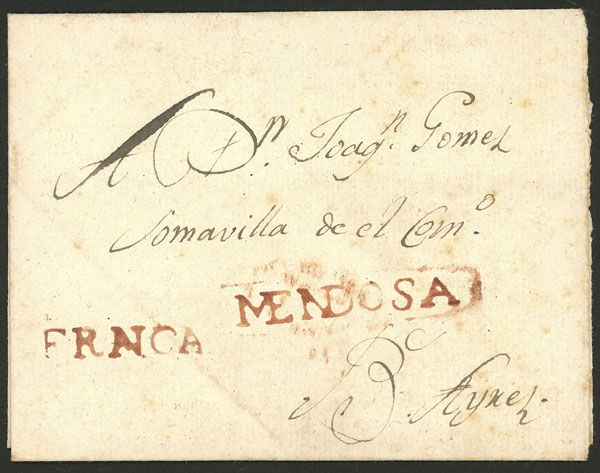 A Dn. Joaqn. Gomez
Somavilla de el Como.
MENDOSA
FRNCA
Bs. Ayrez.